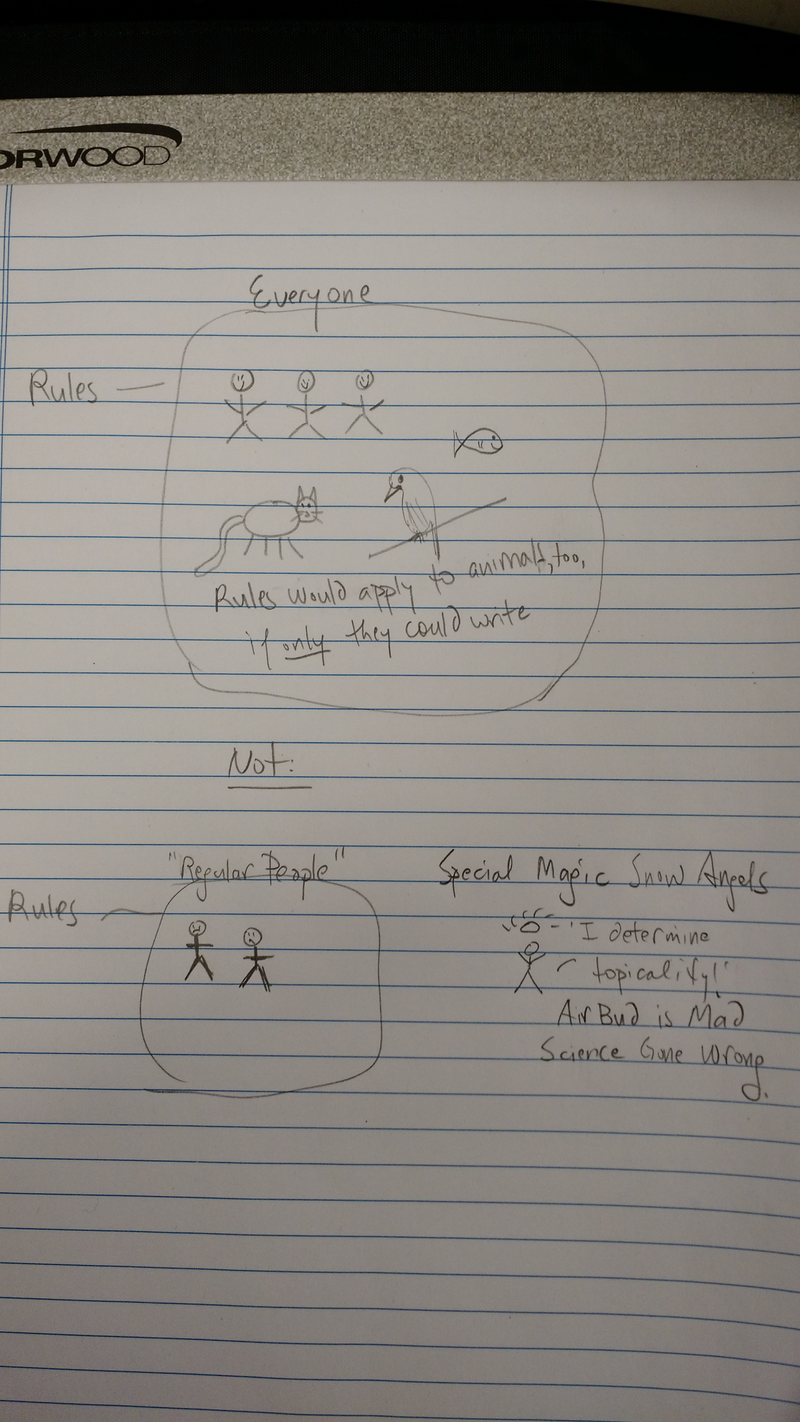 ORWOOD
Everyone
Rules
Rules would apply to animals, too,
if only they could write
Not:
"Regular People"
Special Magic Snow Angels
Rules
"I determine
topicality!"
Air Bud is Mad
Science Gone Wrong.